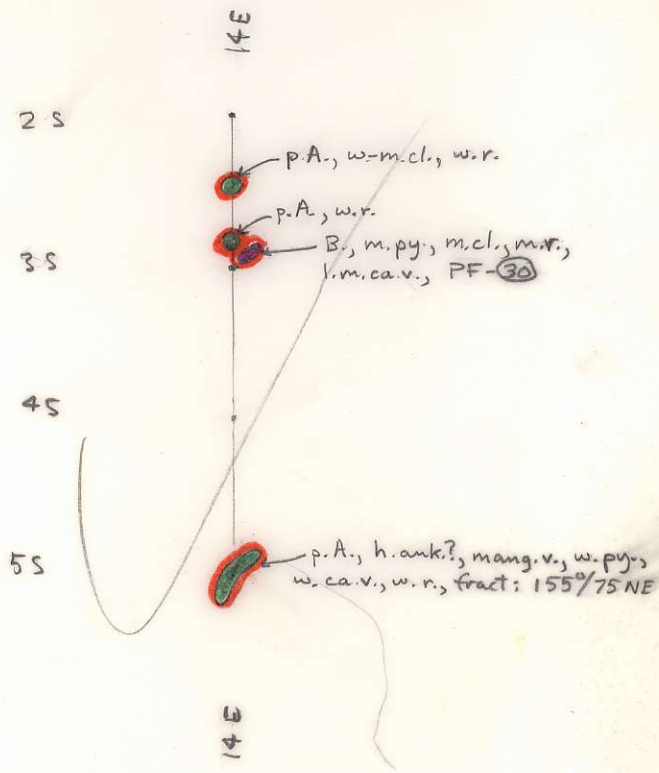 14E
2S
p.A., w-m.cl., w.r.
p.A., w.r.
3S
B., m.py., m.cl., m.r.,
l.m.ca.v., PF-30
4S
5S
p.A., h.ank.?, mang.v., w.py.,
w.ca.v., w.r., fract: 155°/75NE
14E